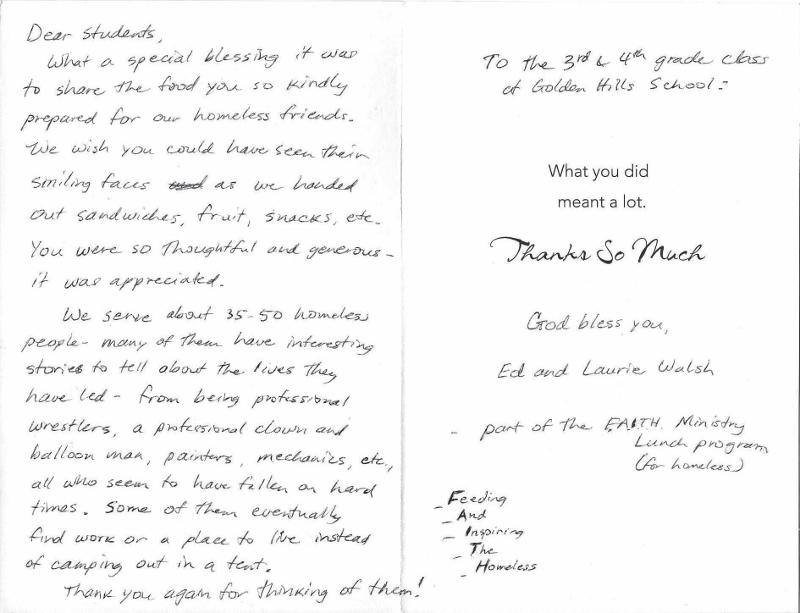 Dear Students,
What a special blessing it was
to share the food you so kindly
prepared for our homeless friends.
We wish you could have seen their
smiling faces as we handed
out sandwiches, fruit, snacks, etc.
You were so thoughtful and generous -
it was appreciated.
We serve about 35-50 homeless
people - many of them have interesting
stories to tell about the lives they
have led - from being professional
wrestlers, a professional clown and
balloon man, painters, mechanics, etc.,
all who seem to have fallen on hard
times. Some of them eventually
find work or a place to live instead
of camping out in a tent.
Thank you again for thinking of them!
To the 3rd & 4th grade class
at Golden Hills School:
What you did
meant a lot.
Thanks So Much
God bless you,
Ed and Laurie Walsh
- part of the F.A.I.T.H. Ministry
Lunch program
(for homeless)
- Feeding
- And
- Inspiring
- The
- Homeless